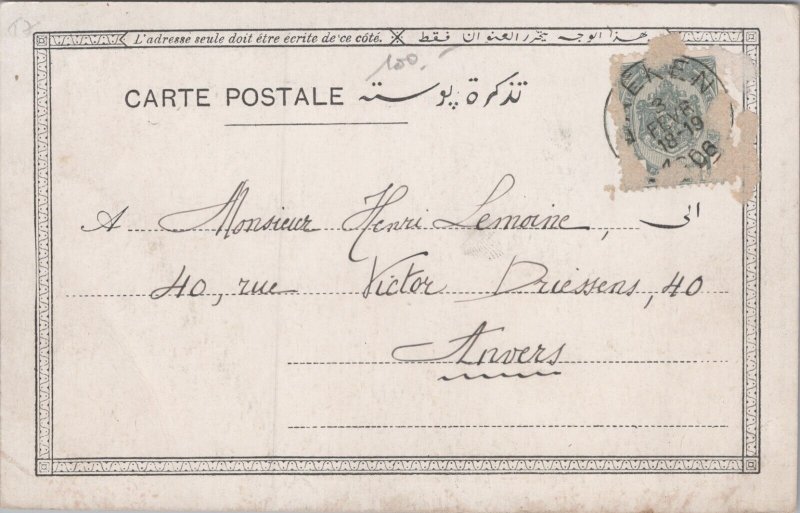 L'adresse seule doit être écrite de ce côté. هذا الوجه يتحرر العنوان فقط
100.
CARTE POSTALE تذكرة پوسته
EKEN
FEVR
18-19
1906
A Monsieur Henri Lemoine, الى
40, rue Victor Driessens, 40
Anvers